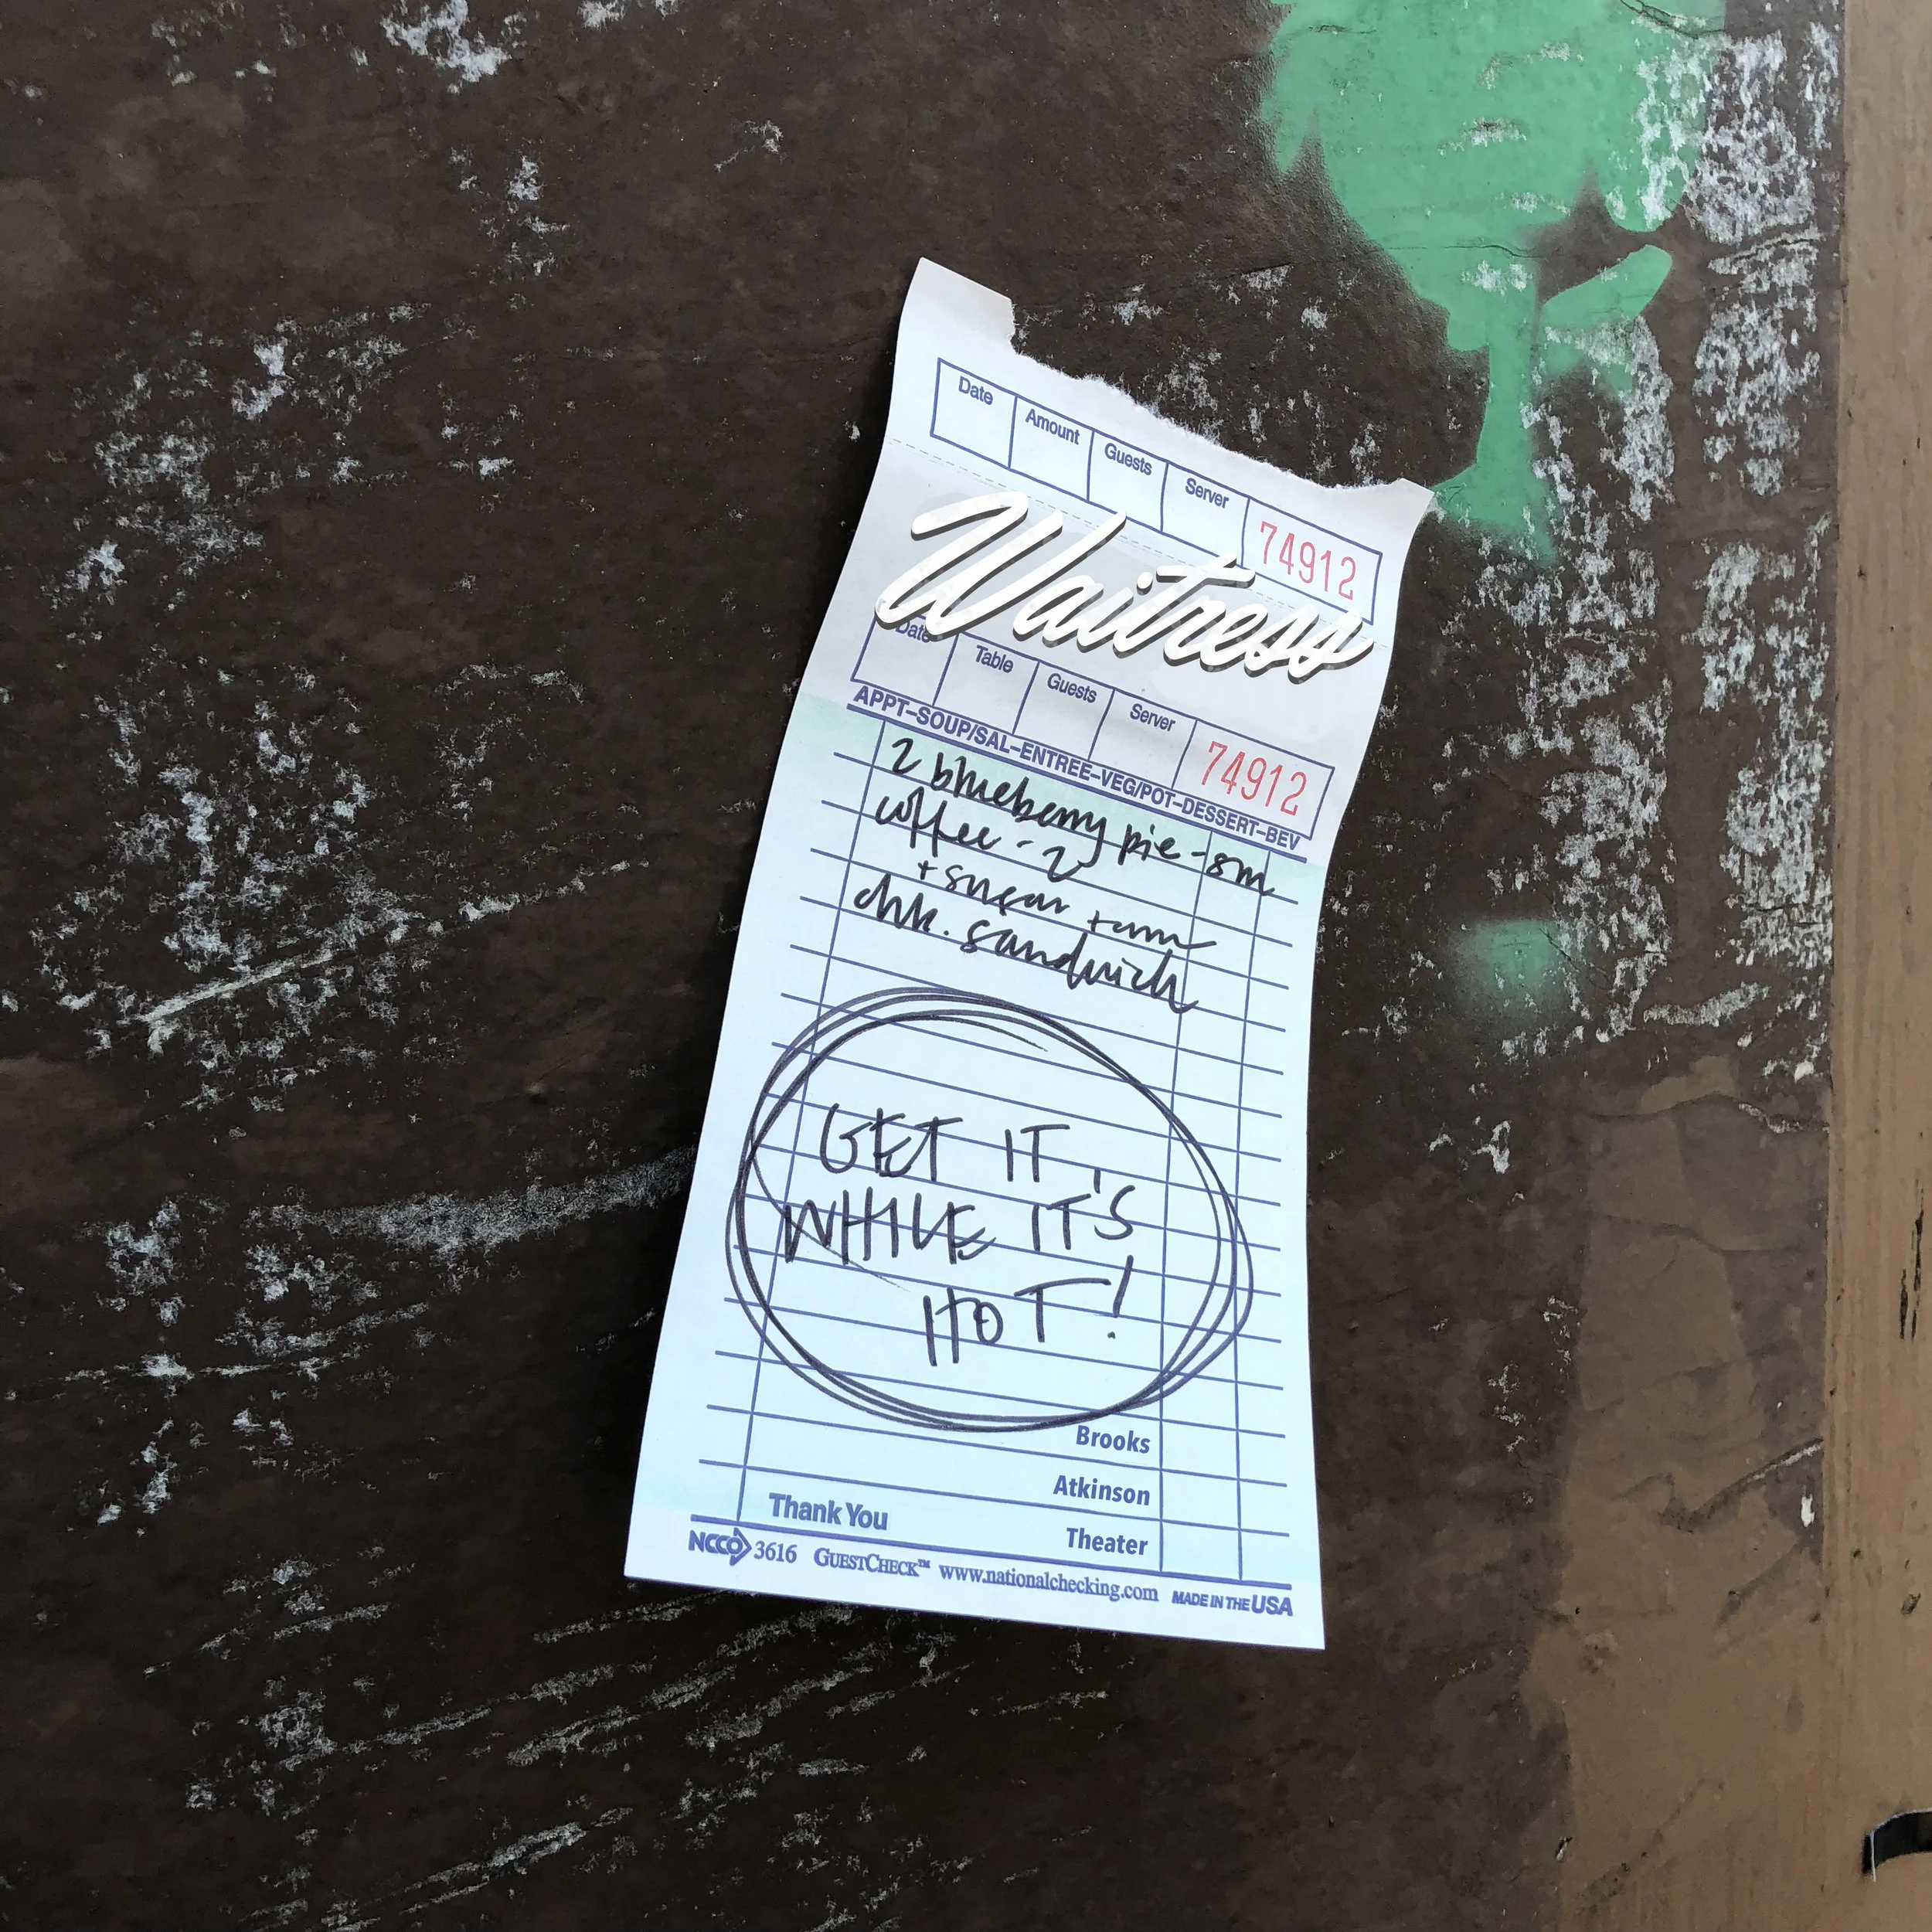 Date Amount Guests Server 74912
Waitress
Date Table Guests Server 74912
APPT-SOUP/SAL-ENTREE-VEG/POT-DESSERT-BEV
2 blueberry pie - sm
coffee - 2
+ sugar +
chk. sandwich
GET IT
WHILE IT'S
HOT!
Brooks
Atkinson
Thank You Theater
NCCO 3616 GUESTCHECK™ www.nationalchecking.com MADE IN THE USA